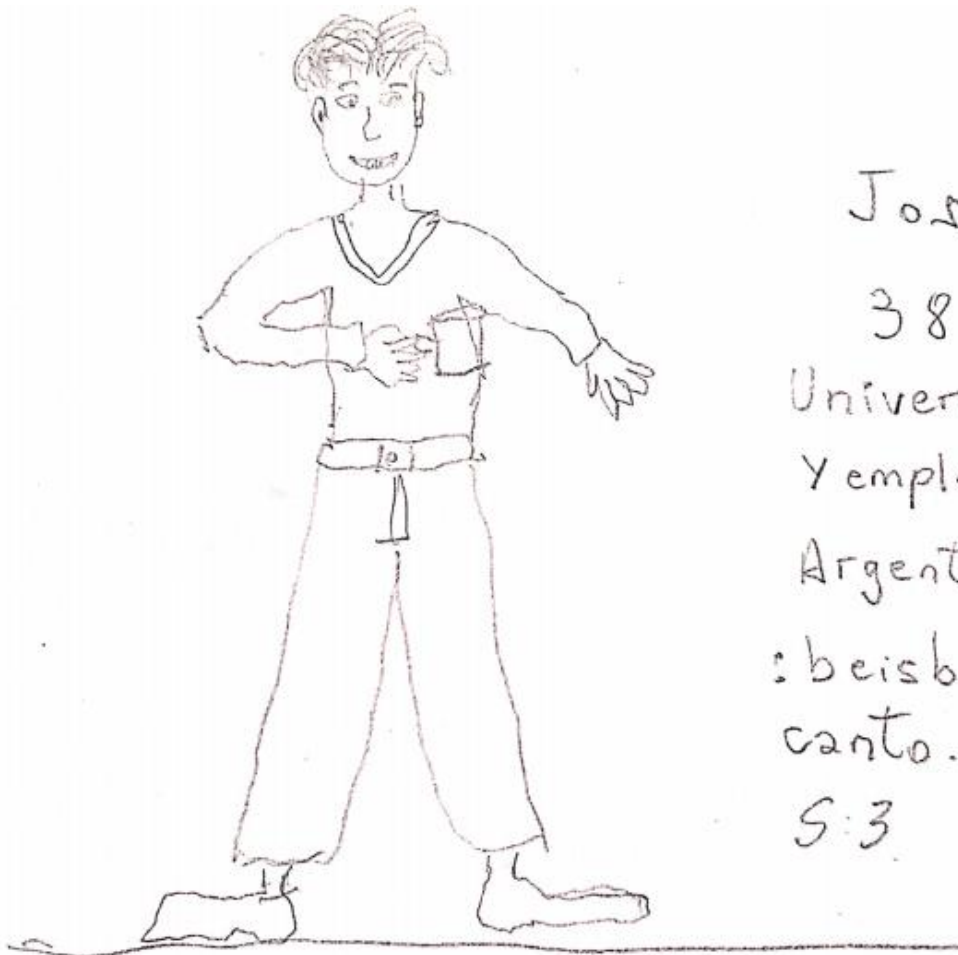 Jos
38
Univer
Y empl
Argent
: beisb
canto.
S:3